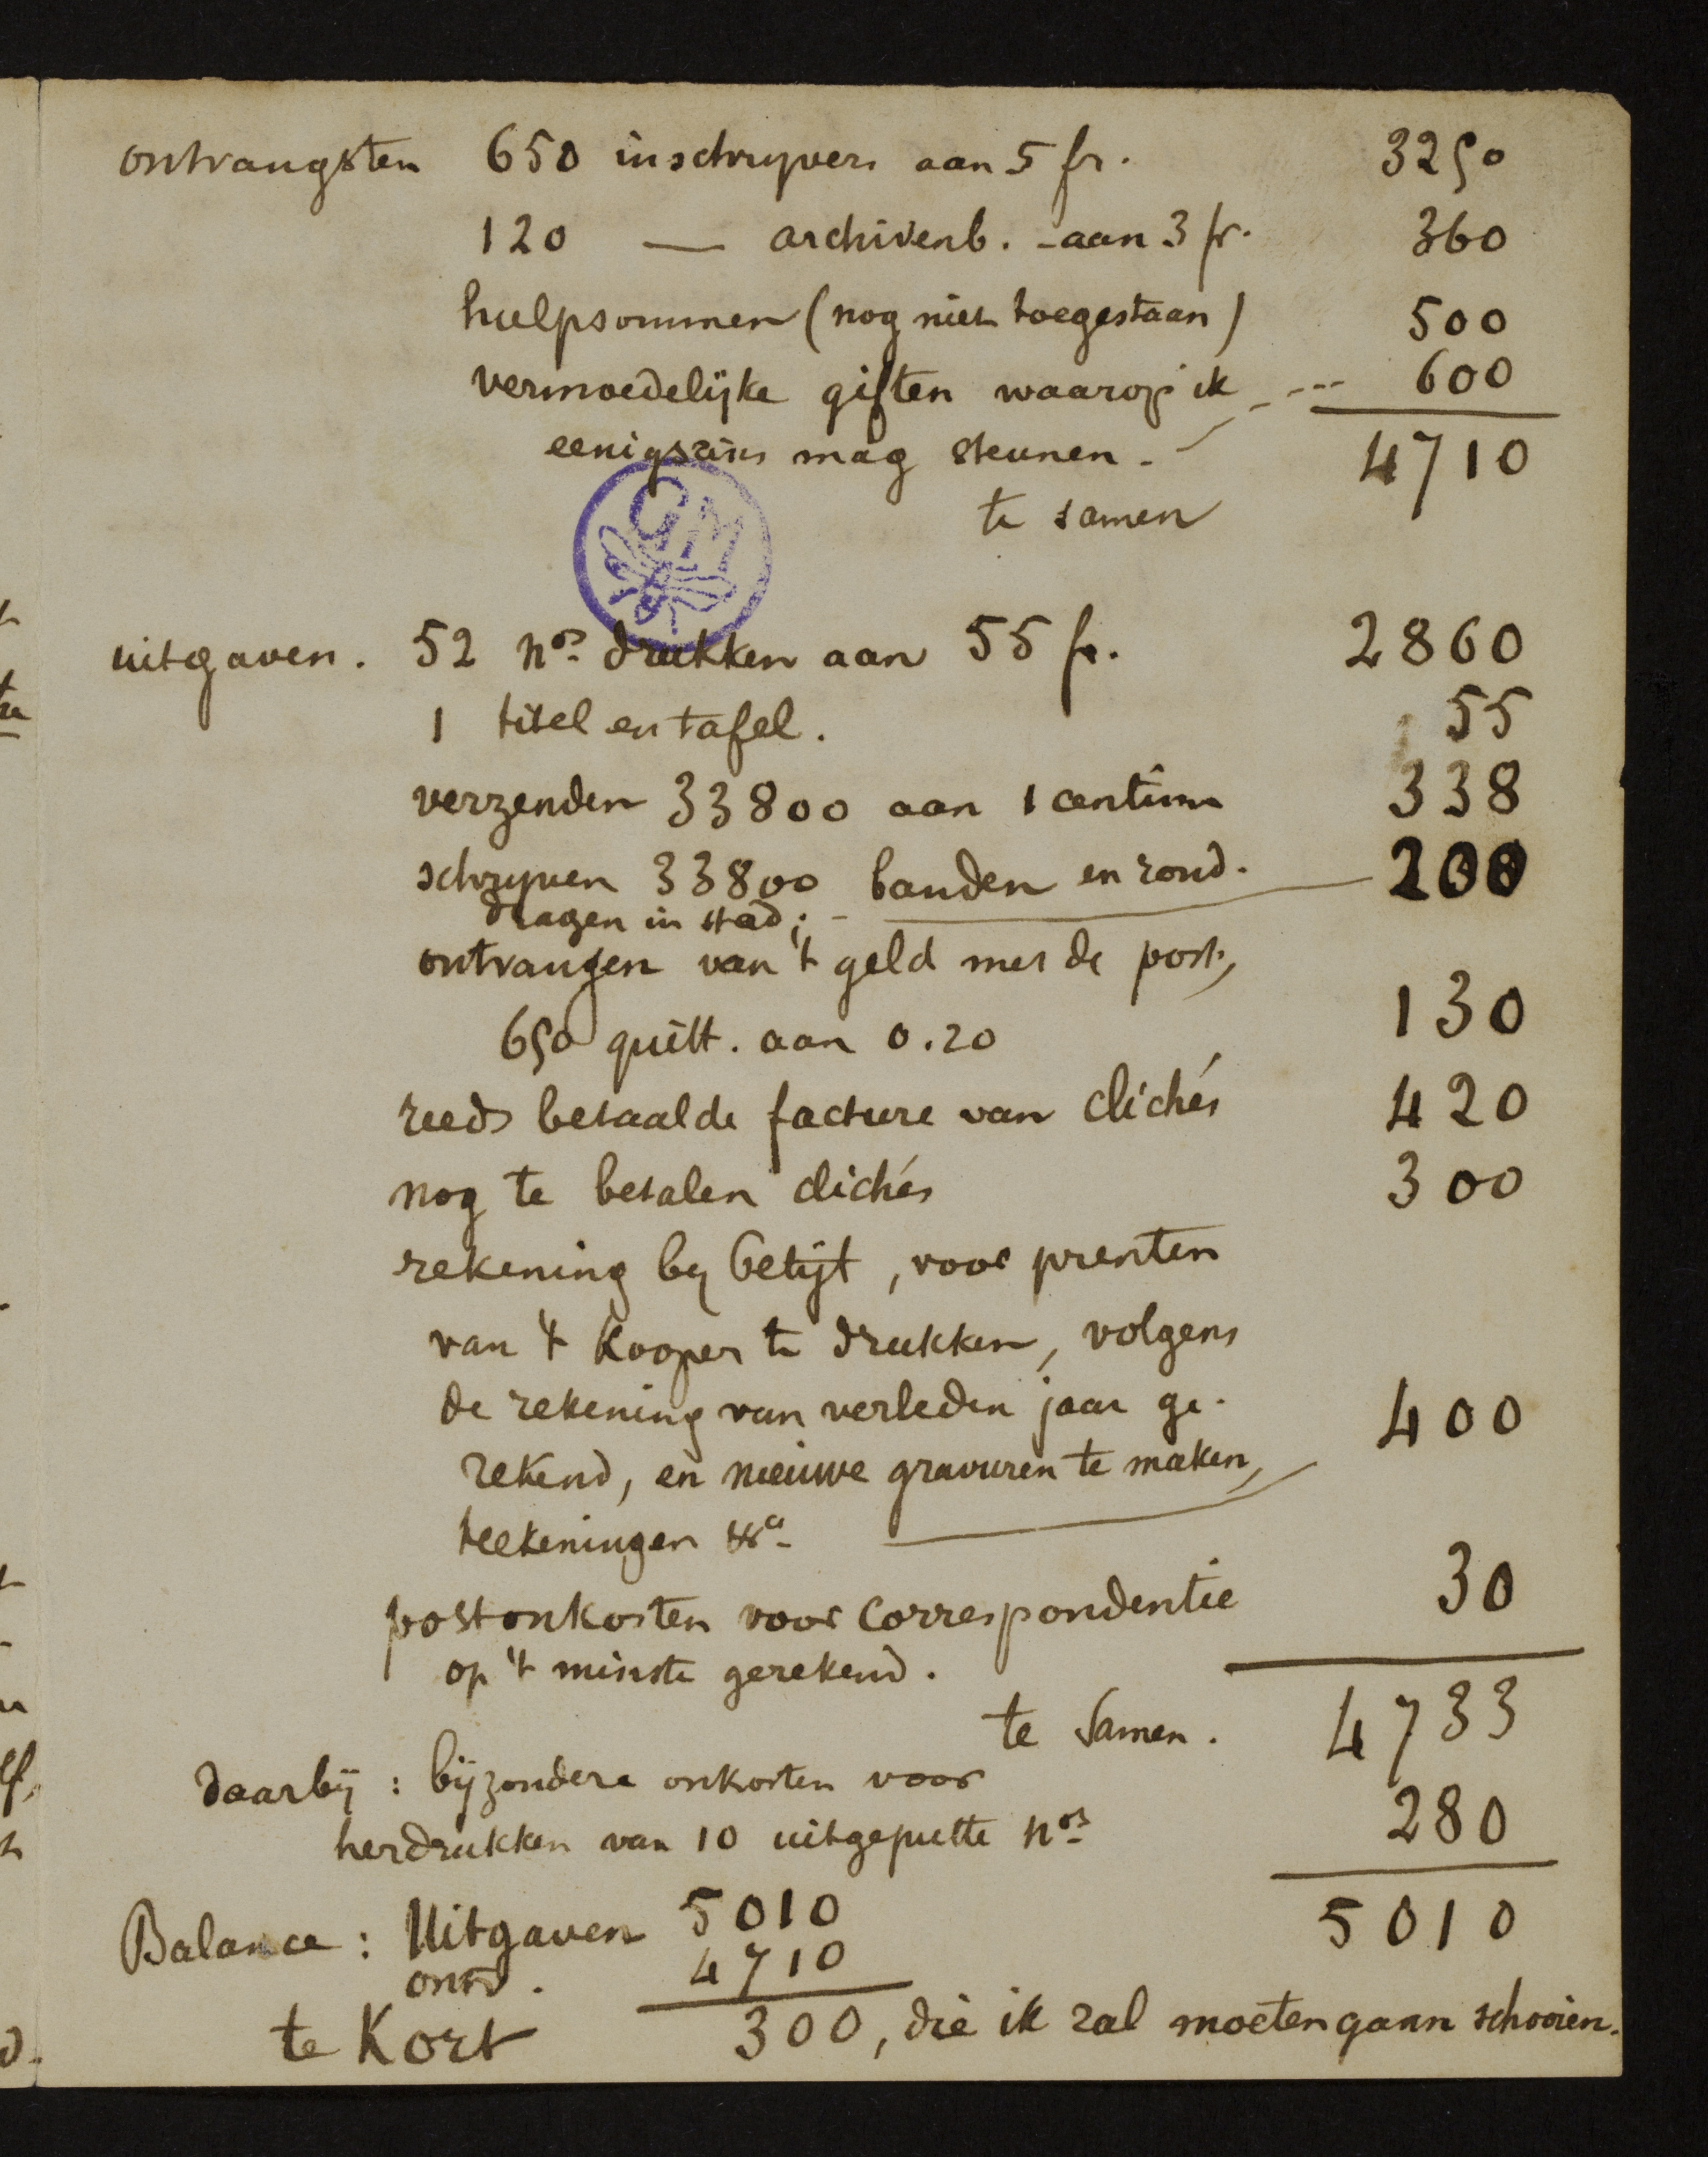 ontvangsten 650 inschryvers aan 5 fr. 3250
120 — archivenb. - aan 3 fr. 360
hulpsommen (nog niet toegestaan) 500
vermoedelijke giften waarop ik --- 600
eenigszins mag steunen. - 4710
te samen
GM
uitgaven. 52 nos drukken aan 55 fr. 2860
1 titel en tafel. 55
verzenden 33800 aan 1 centim 338
schryven 33800 banden en rond- 200
dragen in stad; -
ontvangen van 't geld met de post,
650 quitt. aan 0.20 130
reeds betaalde facture van clichés 420
nog te betalen clichés 300
rekening by Betijt, voor prenten
van 't Kooper te drukken, volgens
de rekening van verleden jaar ge- 400
rekend, en nieuwe gravuren te maken,
teekeningen
postonkosten voor correspondentie 30
op 't minste gerekend.
te samen. 4733
daarbij : bijzondere onkosten voor
herdrukken van 10 uitgeputte nos 280
Balance : Uitgaven 5010 5010
ontv. 4710
te Kort 300, die ik zal moeten gaan schooien.